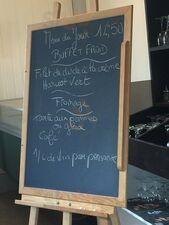 Menu du Jour 14,50
BUFFET FROID
Filet de dinde à la crème
Haricot Vert
Fromage
Tarte aux pommes
ou glace
Café
1/4 de Vin par personne